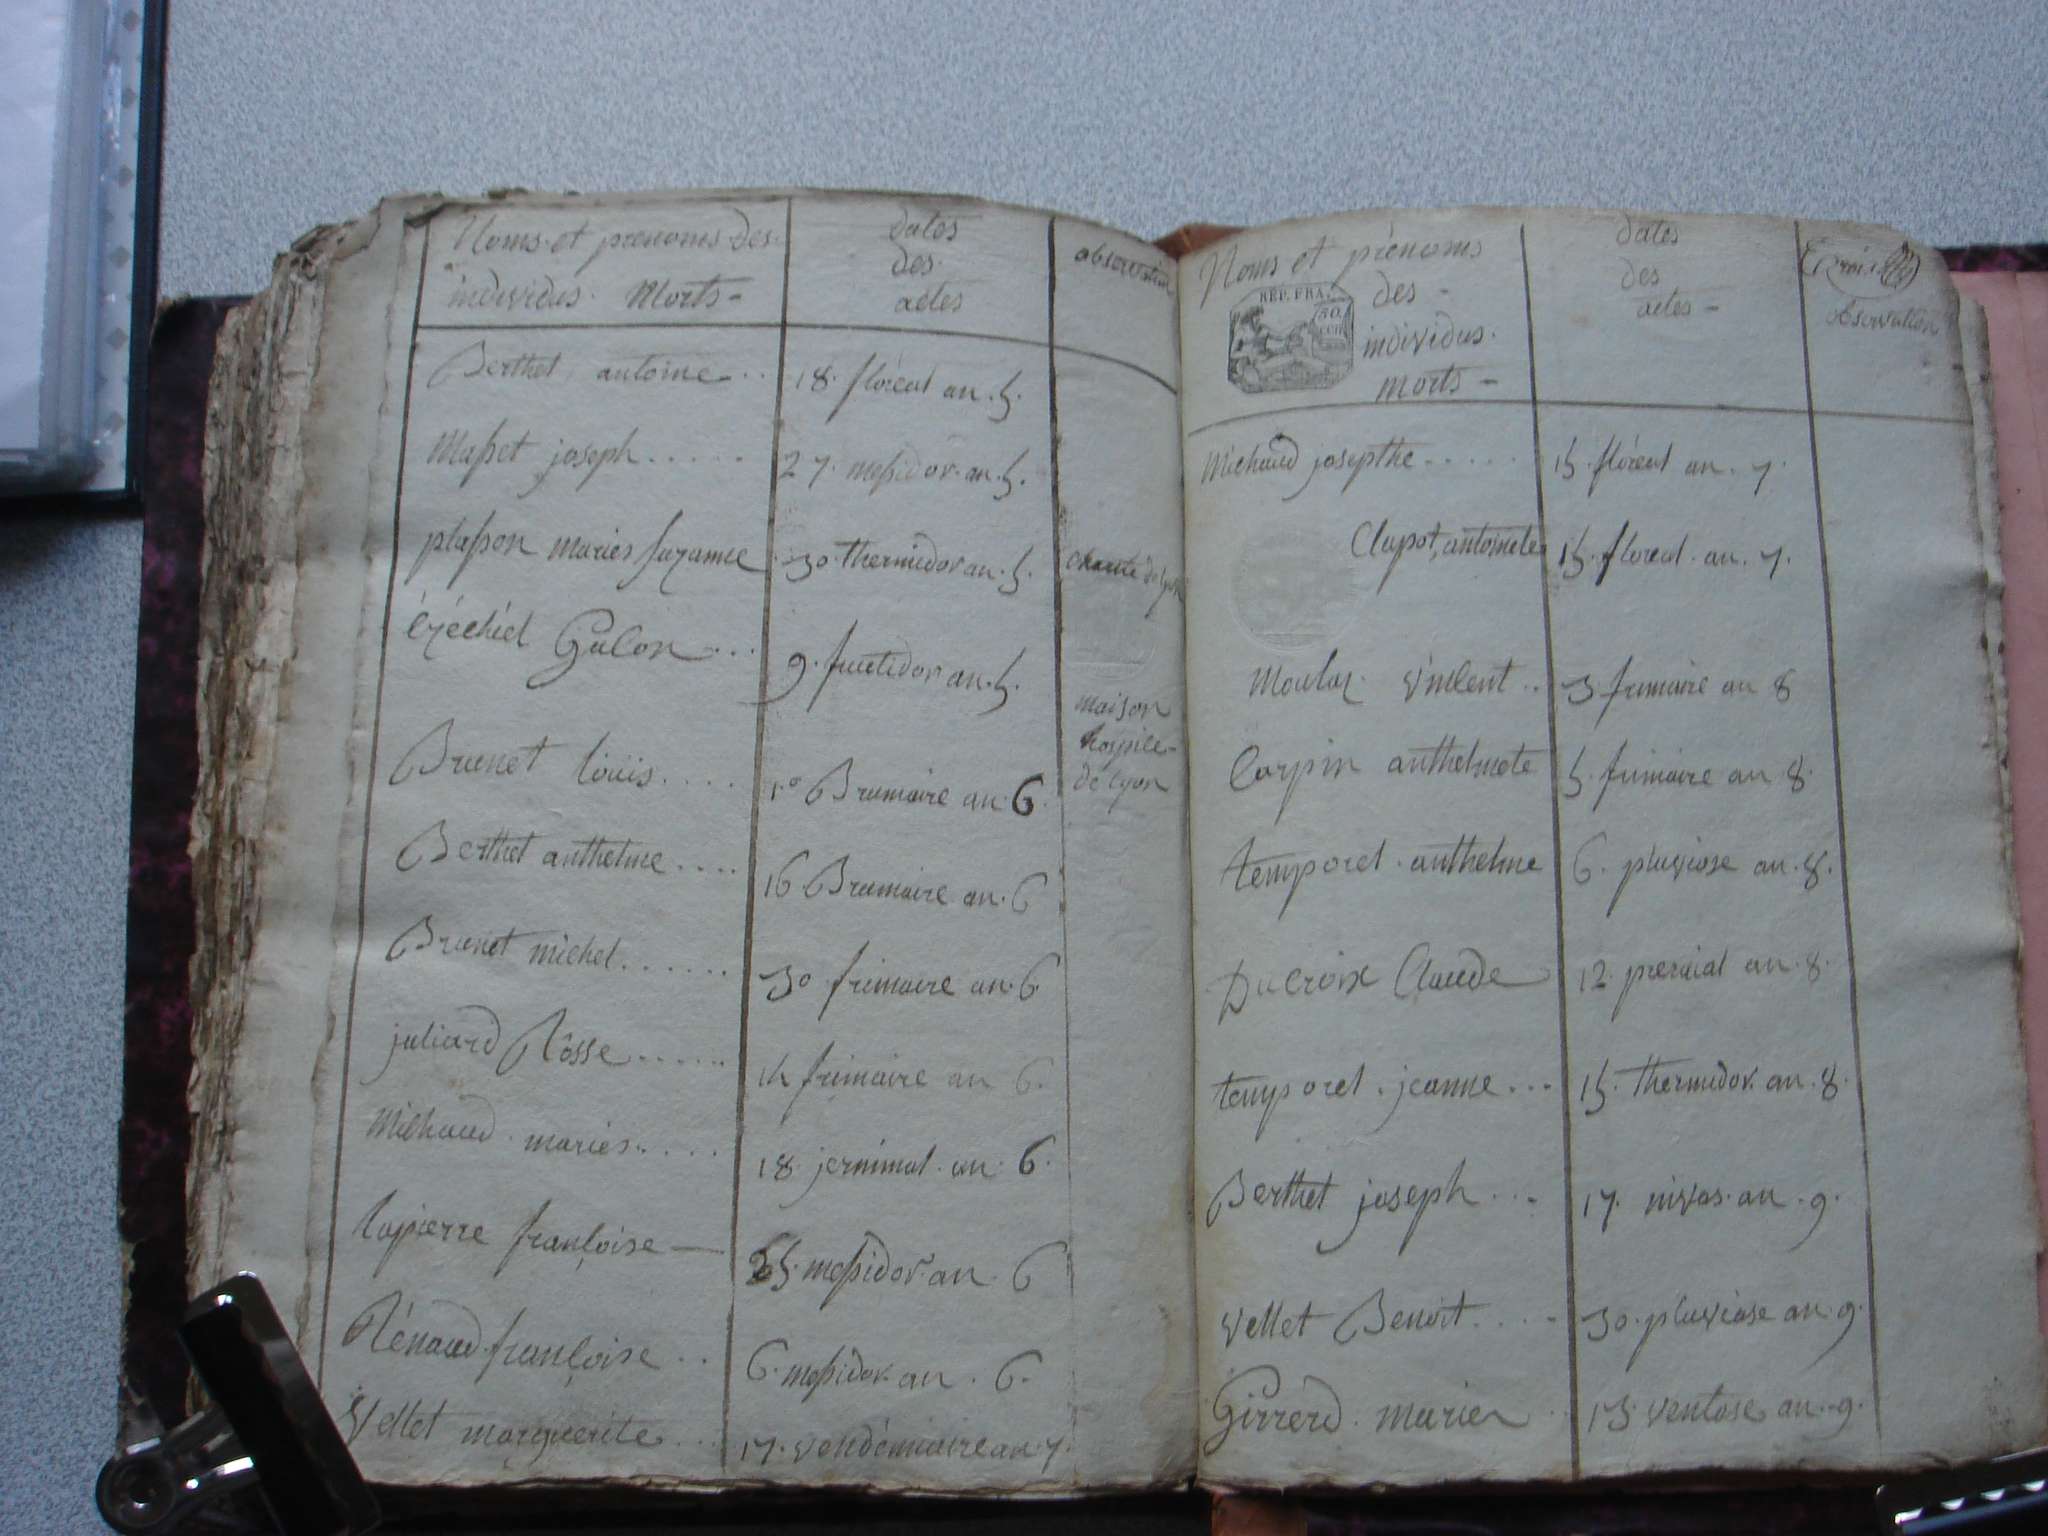 Noms et prénoms des dates observation
individus Morts - des
actes
Berthet antoine .. 18 floreal an 5.
Masset joseph ..... 27 messidor an 5.
plasson maries suzanne . 30 thermidor an 5. charité de lyon
ézéchiel Gulon ... 9 fructidor an 5.
maison
hospice
de lyon
Brunet louis .... 1º Brumaire an 6
Berthet anthelme .... 16 Brumaire an 6
Brunet michel ...... 30 frimaire an 6
juliard Rôsse ...... frimaire an 6.
Michaud maries .... 18 jerminal an 6.
lapierre françoise — 25 messidor an 6
Rénaud françoise .. 6 messidor an 6.
Vellet marguerite ... 17 vendémiaire an 7.
Noms et prénoms dates
des - des
individus actes - observation
morts -
REP. FRA.
50
CEN
Michaud josepthe ..... 15 floréal an 7.
Clapot antoinete 15 floreal an 7.
Moulaz vincent .. 3 frimaire an 8
Carpin anthelmete 5 frimaire an 8.
temporel anthelme 6 pluviose an 8.
Ducroix Claude 12 prerial an 8.
temporel jeanne ... 15 thermidor an 8.
Berthet joseph ... 17 nivos an 9.
Vellet Benoit .... 30 pluviose an 9.
Girrerd marie .. 13 ventose an 9.